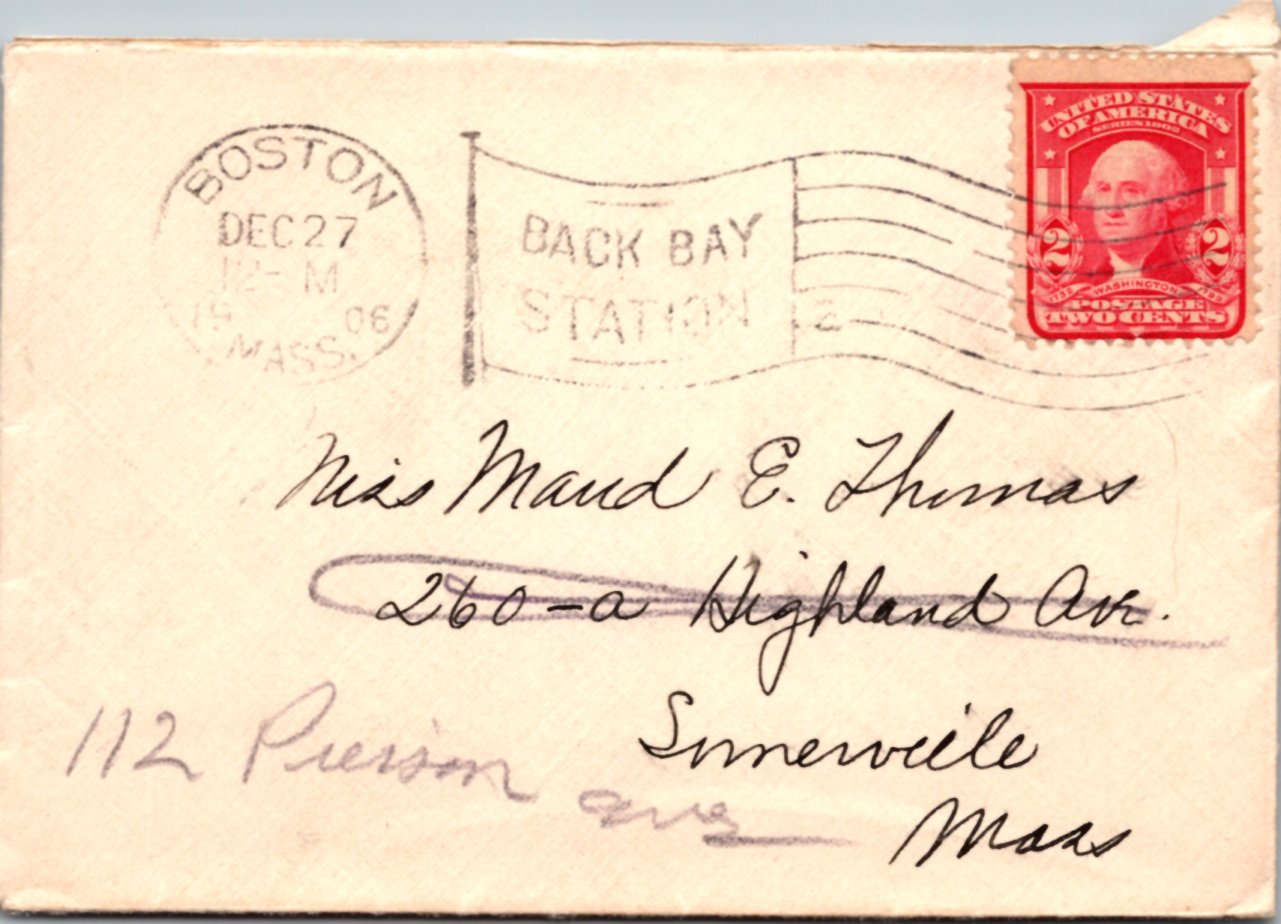 BOSTON
DEC 27
12- M
19 06
MASS.
BACK BAY
STATION
2
UNITED STATES
OF AMERICA
SERIES 1902
2 2
1732 WASHINGTON 1799
POSTAGE
TWO CENTS
Miss Maud E. Thomas
260-a Highland Ave.
Somerville
Mass
112 Pierson
ave